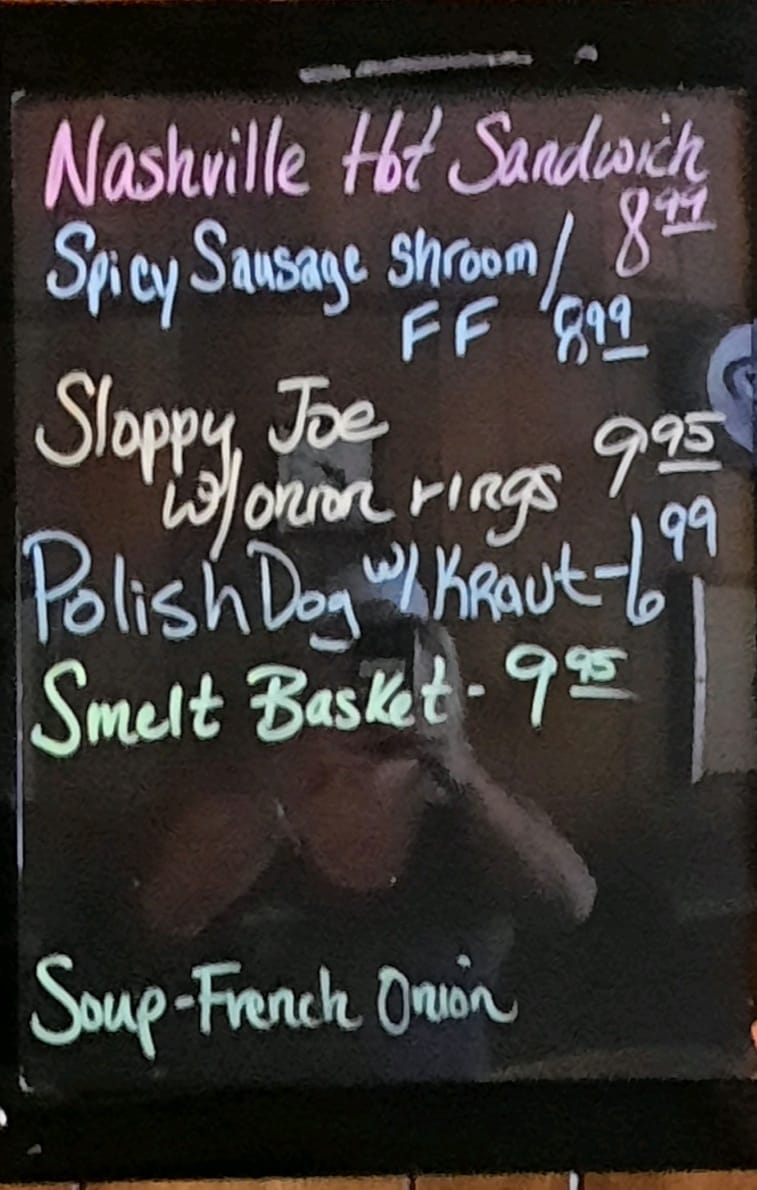 Nashville Hot Sandwich
8.99
Spicy Sausage Shroom/
FF 8.99
Sloppy Joe
w/onion rings 9.95
Polish Dog w/ Kraut-6.99
Smelt Basket - 9.95
Soup-French Onion